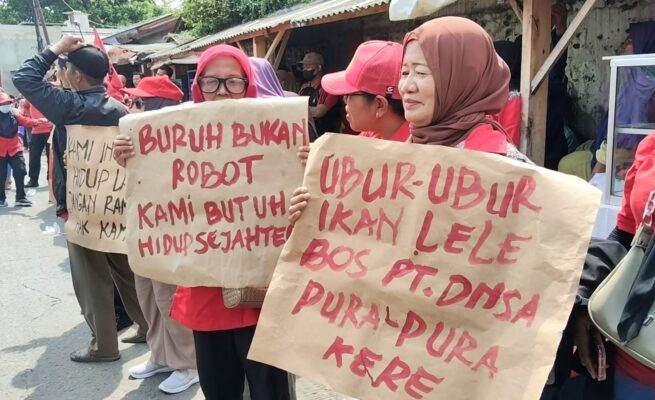 KAMI IN
HIDUP LA
BURUH BUKAN
ROBOT
KAMI BUTUH
HIDUP SEJAHTE
UBUR-UBUR
IKAN LELE
BOS PT. DMSA
PURA-PURA
KERE